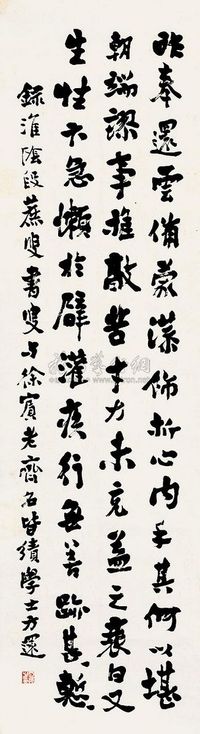 昨奉還雲備蒙藻飾折心內手其何以堪
朝端謬事推敲苦才力未充益之衰白又
生性不急懶於臂灌疾行無善跡甚慙
錄淮陰段蔗叟書叟與徐賓老齊名皆績學士方還